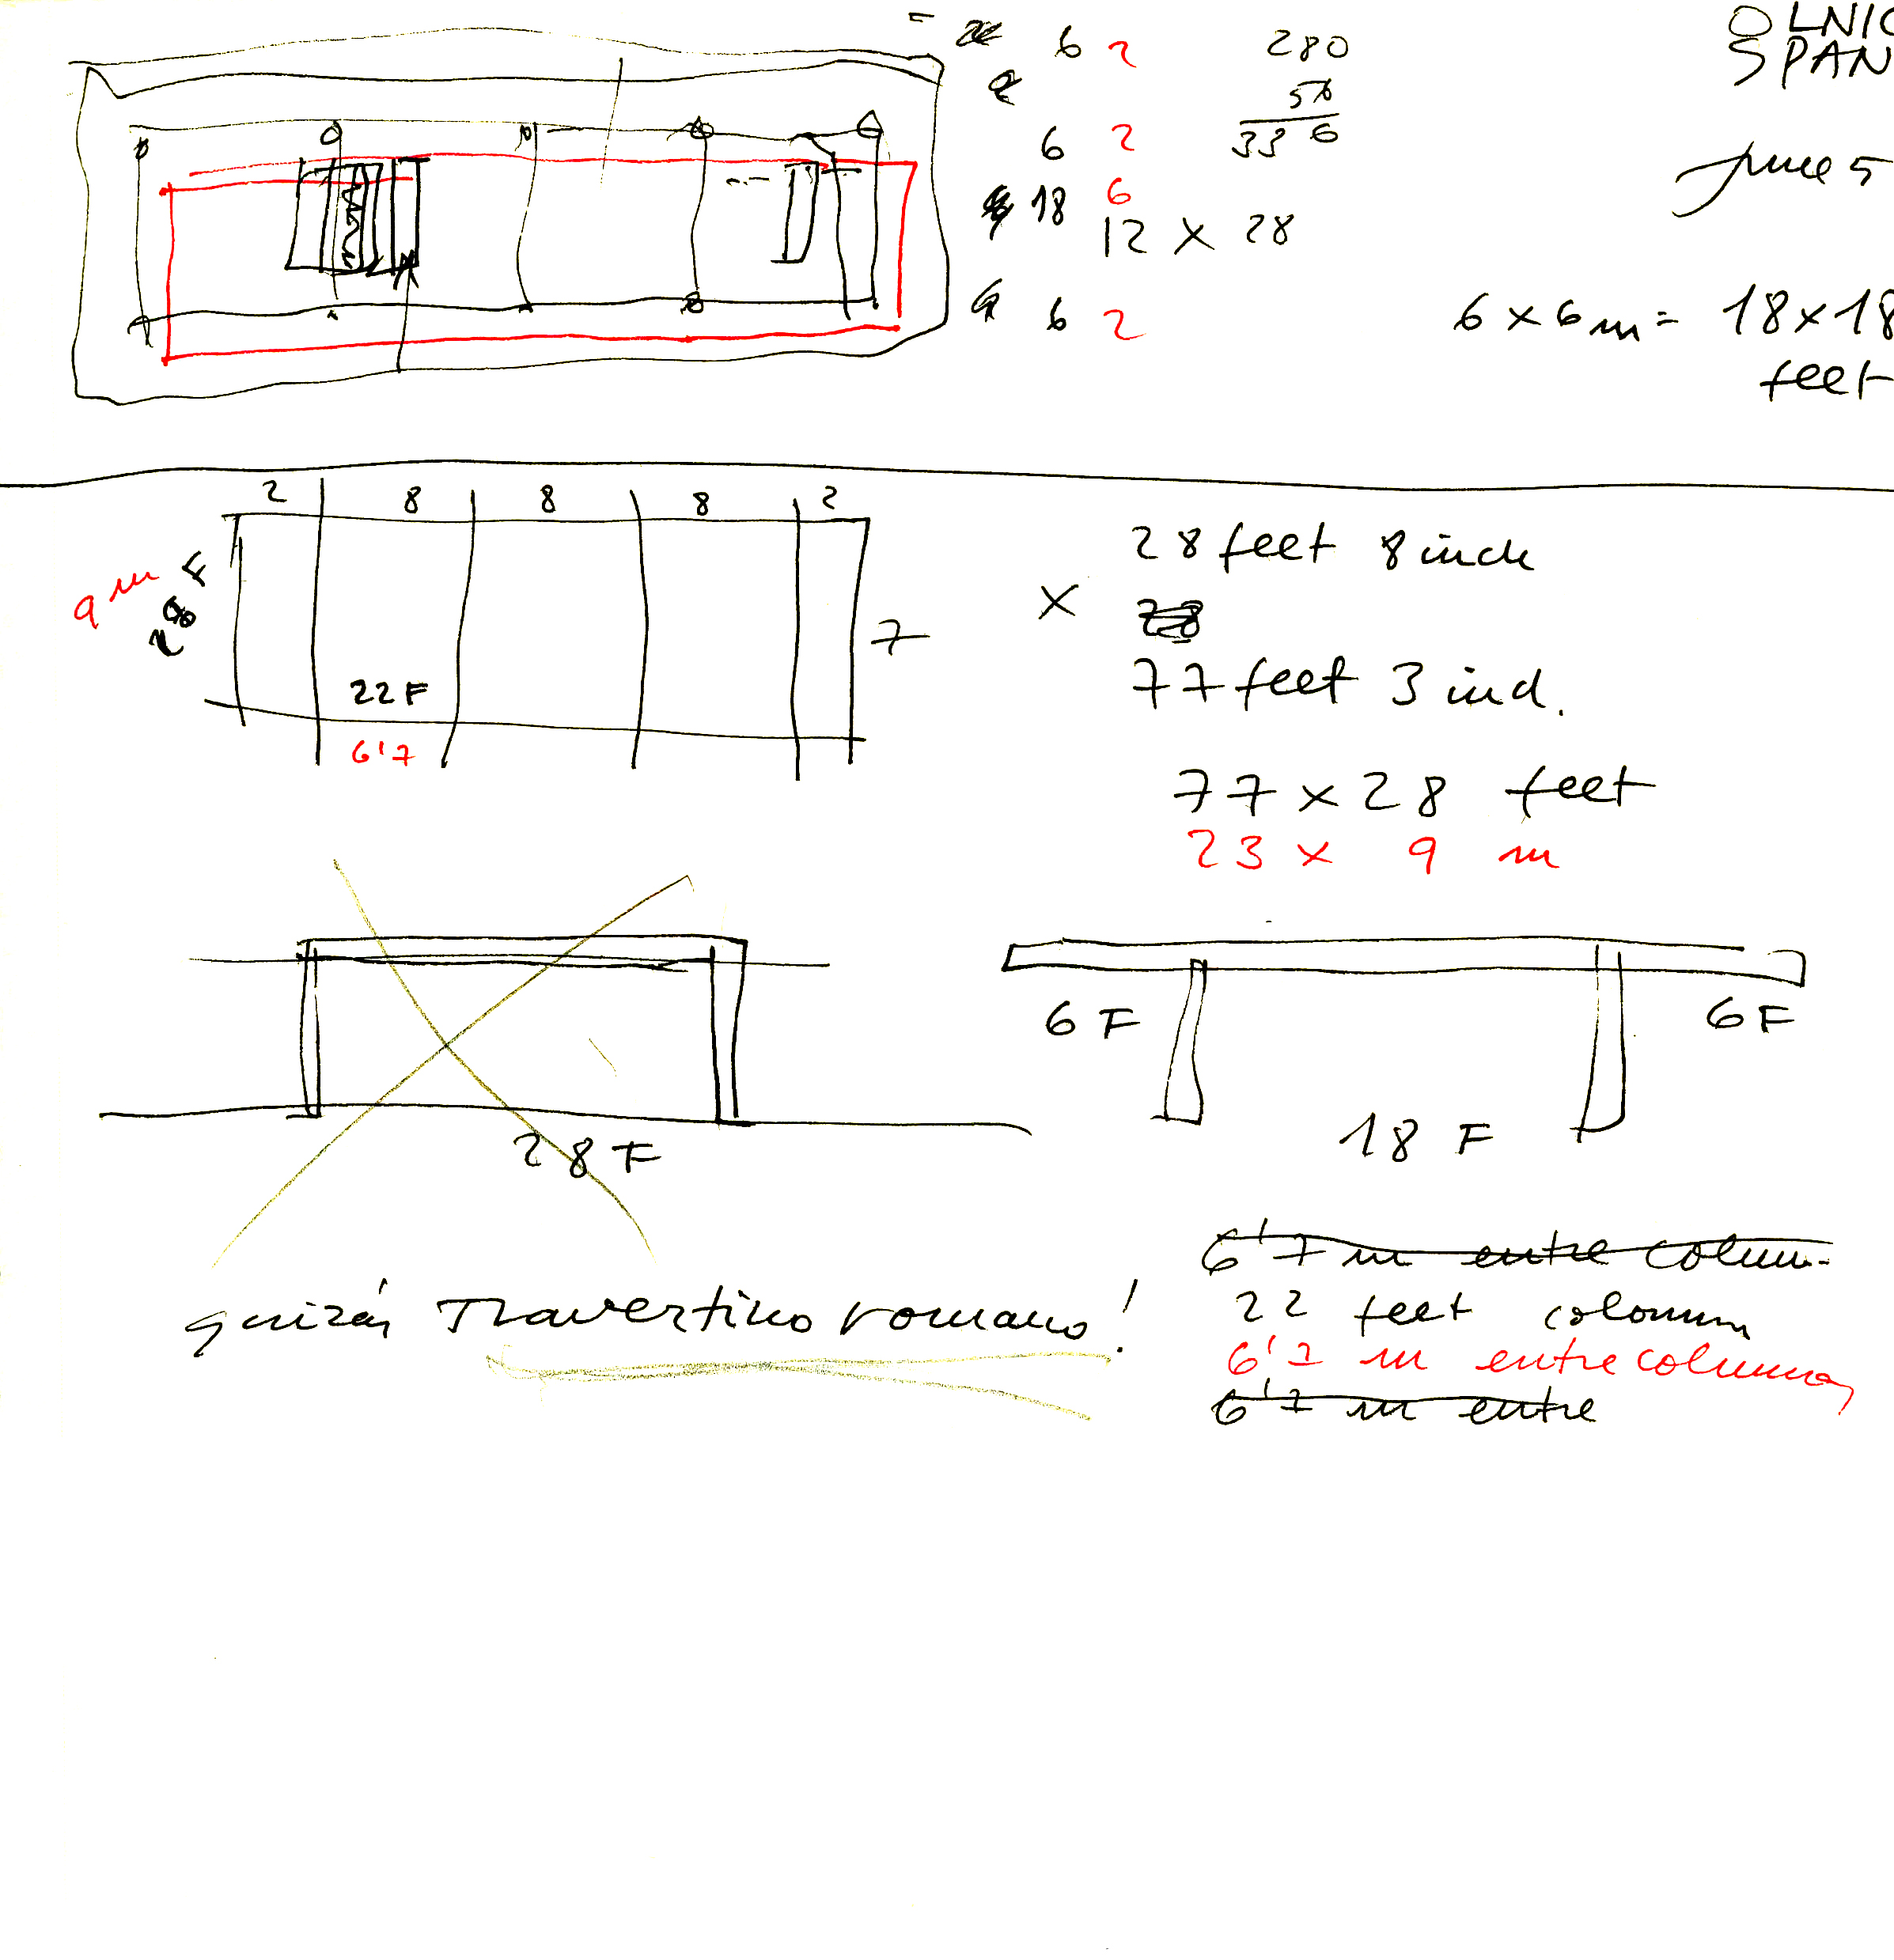 OLNIC
SPAN
6 2 280
56
6 2 336
18 6
12 x 28
June 5
6 2
6 x 6 m = 18 x 18
feet
2 8 8 8 2
9 m
28 F
7
22 F
6'7
28 feet 8 inch
x
28
77 feet 3 ind.
77 x 28 feet
23 x 9 m
28 F
6 F 6 F
18 F
6'7 m entre colum.
quizás Travertino romano!
22 feet colomn
6'7 m entre columnas
6'7 m entre